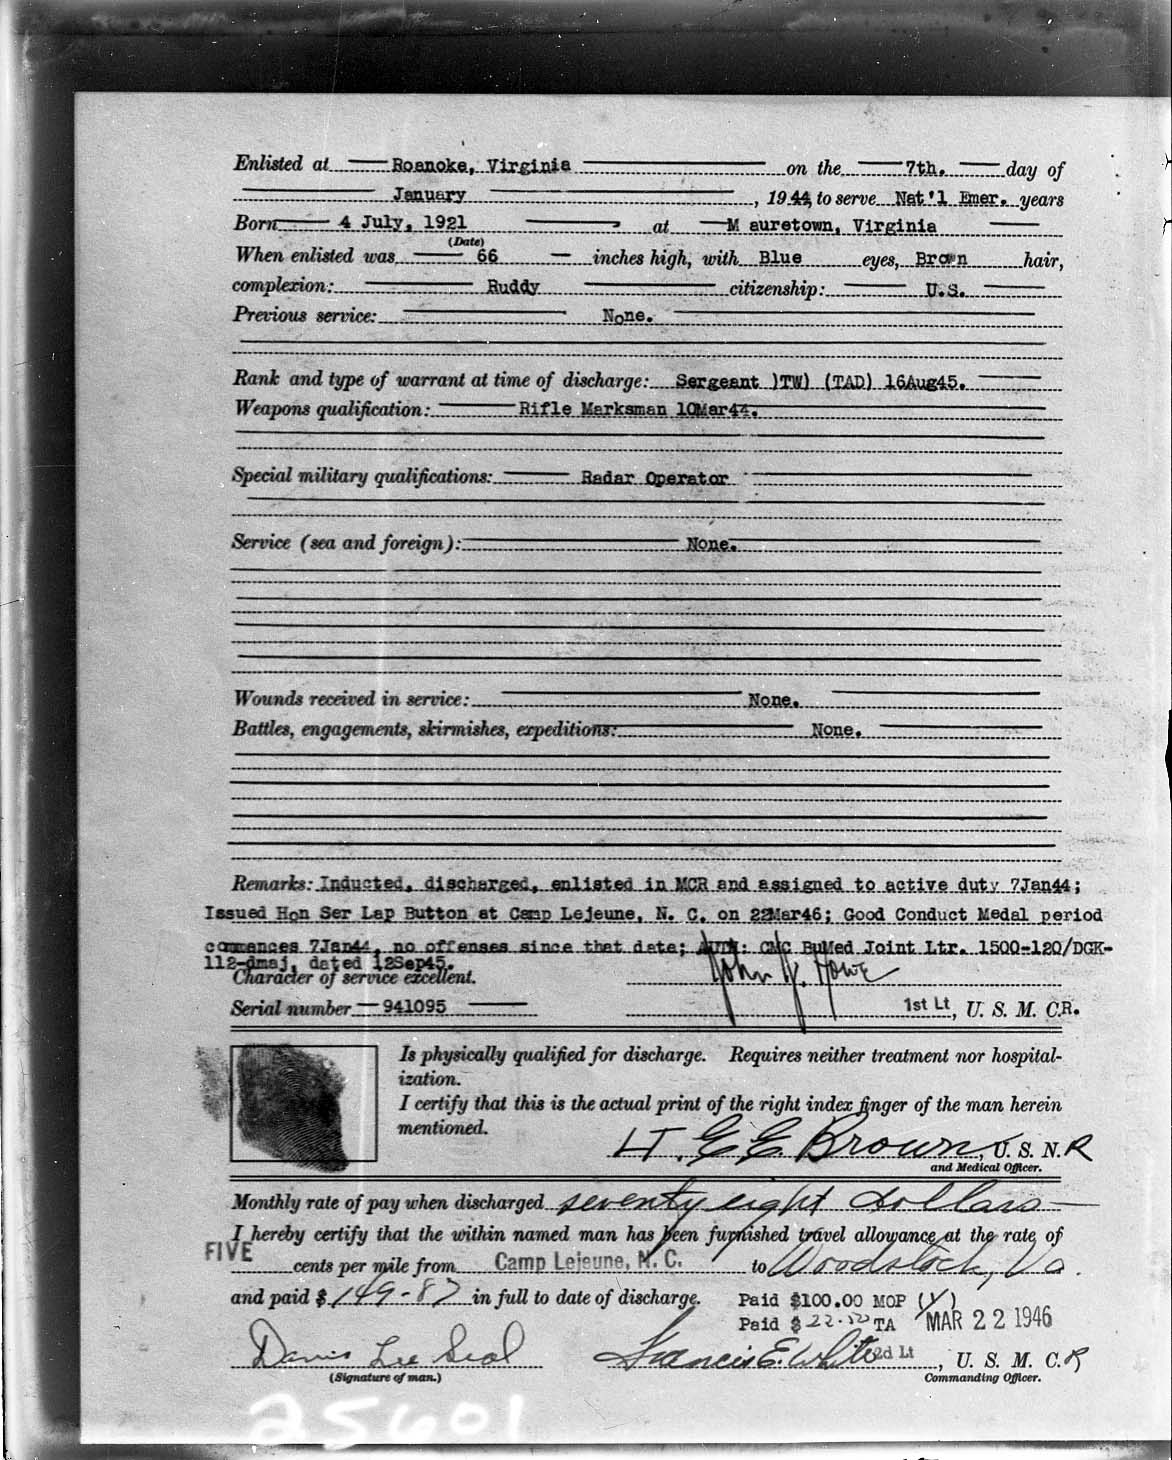 Enlisted at Roanoke, Virginia on the 7th. day of
January, 1944, to serve Nat'l Emer. years
Born 4 July, 1921 at M auretown, Virginia
(Date)
When enlisted was 66 inches high, with Blue eyes, Brown hair,
complexion: Ruddy citizenship: U.S.
Previous service: None.
Rank and type of warrant at time of discharge: Sergeant )TW) (TAD) 16Aug45.
Weapons qualification: Rifle Marksman 10Mar44.
Special military qualifications: Radar Operator
Service (sea and foreign): None.
Wounds received in service: None.
Battles, engagements, skirmishes, expeditions: None.
Remarks: Inducted, discharged, enlisted in MCR and assigned to active duty 7Jan44;
Issued Hon Ser Lap Button at Camp Lejeune, N. C. on 22Mar46; Good Conduct Medal period
commences 7Jan44, no offenses since that date; AUTH: CMC BuMed Joint Ltr. 1500-120/DGK-
112-dmaj, dated 12Sep45.
Character of service excellent. John H. Howe
Serial number 941095 1st Lt, U. S. M. C.R.
Is physically qualified for discharge. Requires neither treatment nor hospital-
ization.
I certify that this is the actual print of the right index finger of the man herein
mentioned.
LT. E E Brown, U. S. N. R
and Medical Officer.
Monthly rate of pay when discharged seventy eight dollars
I hereby certify that the within named man has been furnished travel allowance at the rate of
FIVE cents per mile from Camp Lejeune, N. C. to Woodstock, Va.
and paid $ 149-87 in full to date of discharge. Paid $100.00 MOP (1)
Paid $ TA MAR 22 1946
Davis Lee Seal Francis E. White 2d Lt, U. S. M. C. R
(Signature of man.) Commanding Officer.
25601